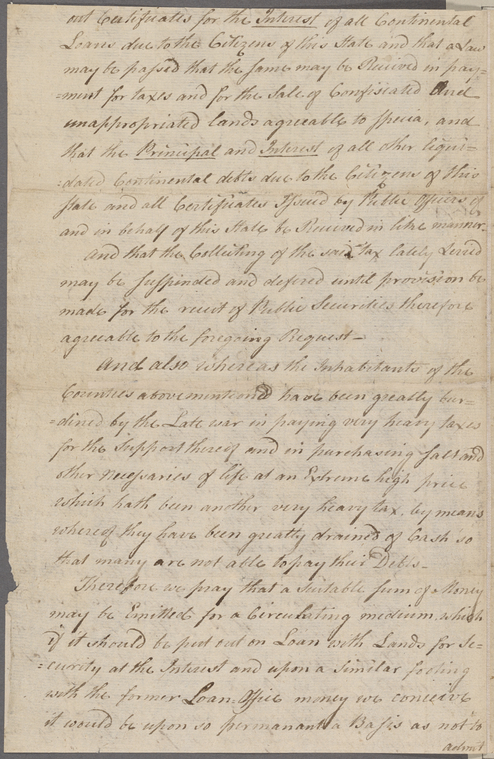 out Certificates for the Interest of all Continental
Loans due to the Citizens of this State and that a Law
may be passed that the same may be Received in pay=
=ment for taxes and for the Sale of Confiscated And
unappropriated lands agreable to specia, and
that the Principal and Interest of all other liqui=
=dated Continental debts due to the Citizens of this
State and all Certificates Issued by Public Officers of
and in behalf of this State be Received in like manner.
And that the Collecting of the said tax lately Levied
may be suspinded and defered until provision be
made for the receit of Public Securities therefore
agreeable to the foregoing Request—
And also whereas the Inhabitants of the
Counties abovementioned have been greatly bur=
=dined by the Late war in paying very heavy taxes
for the Support thereof and in purchasing salt and
other necessaries of life at an Extreme high price
which hath been another very heavy tax, by means
whereof they have been greatly drained of Cash so
that many are not able to pay their Debts—
Therefore we pray that a suitable sum of Money
may be Emitted for a Circulating midium which
if it should be put out on Loan with Lands for Se=
=curity at the Interest and upon a similar footing
with the former Loan-Office money we conceive
it would be upon so permanant a Basis as not to
admit